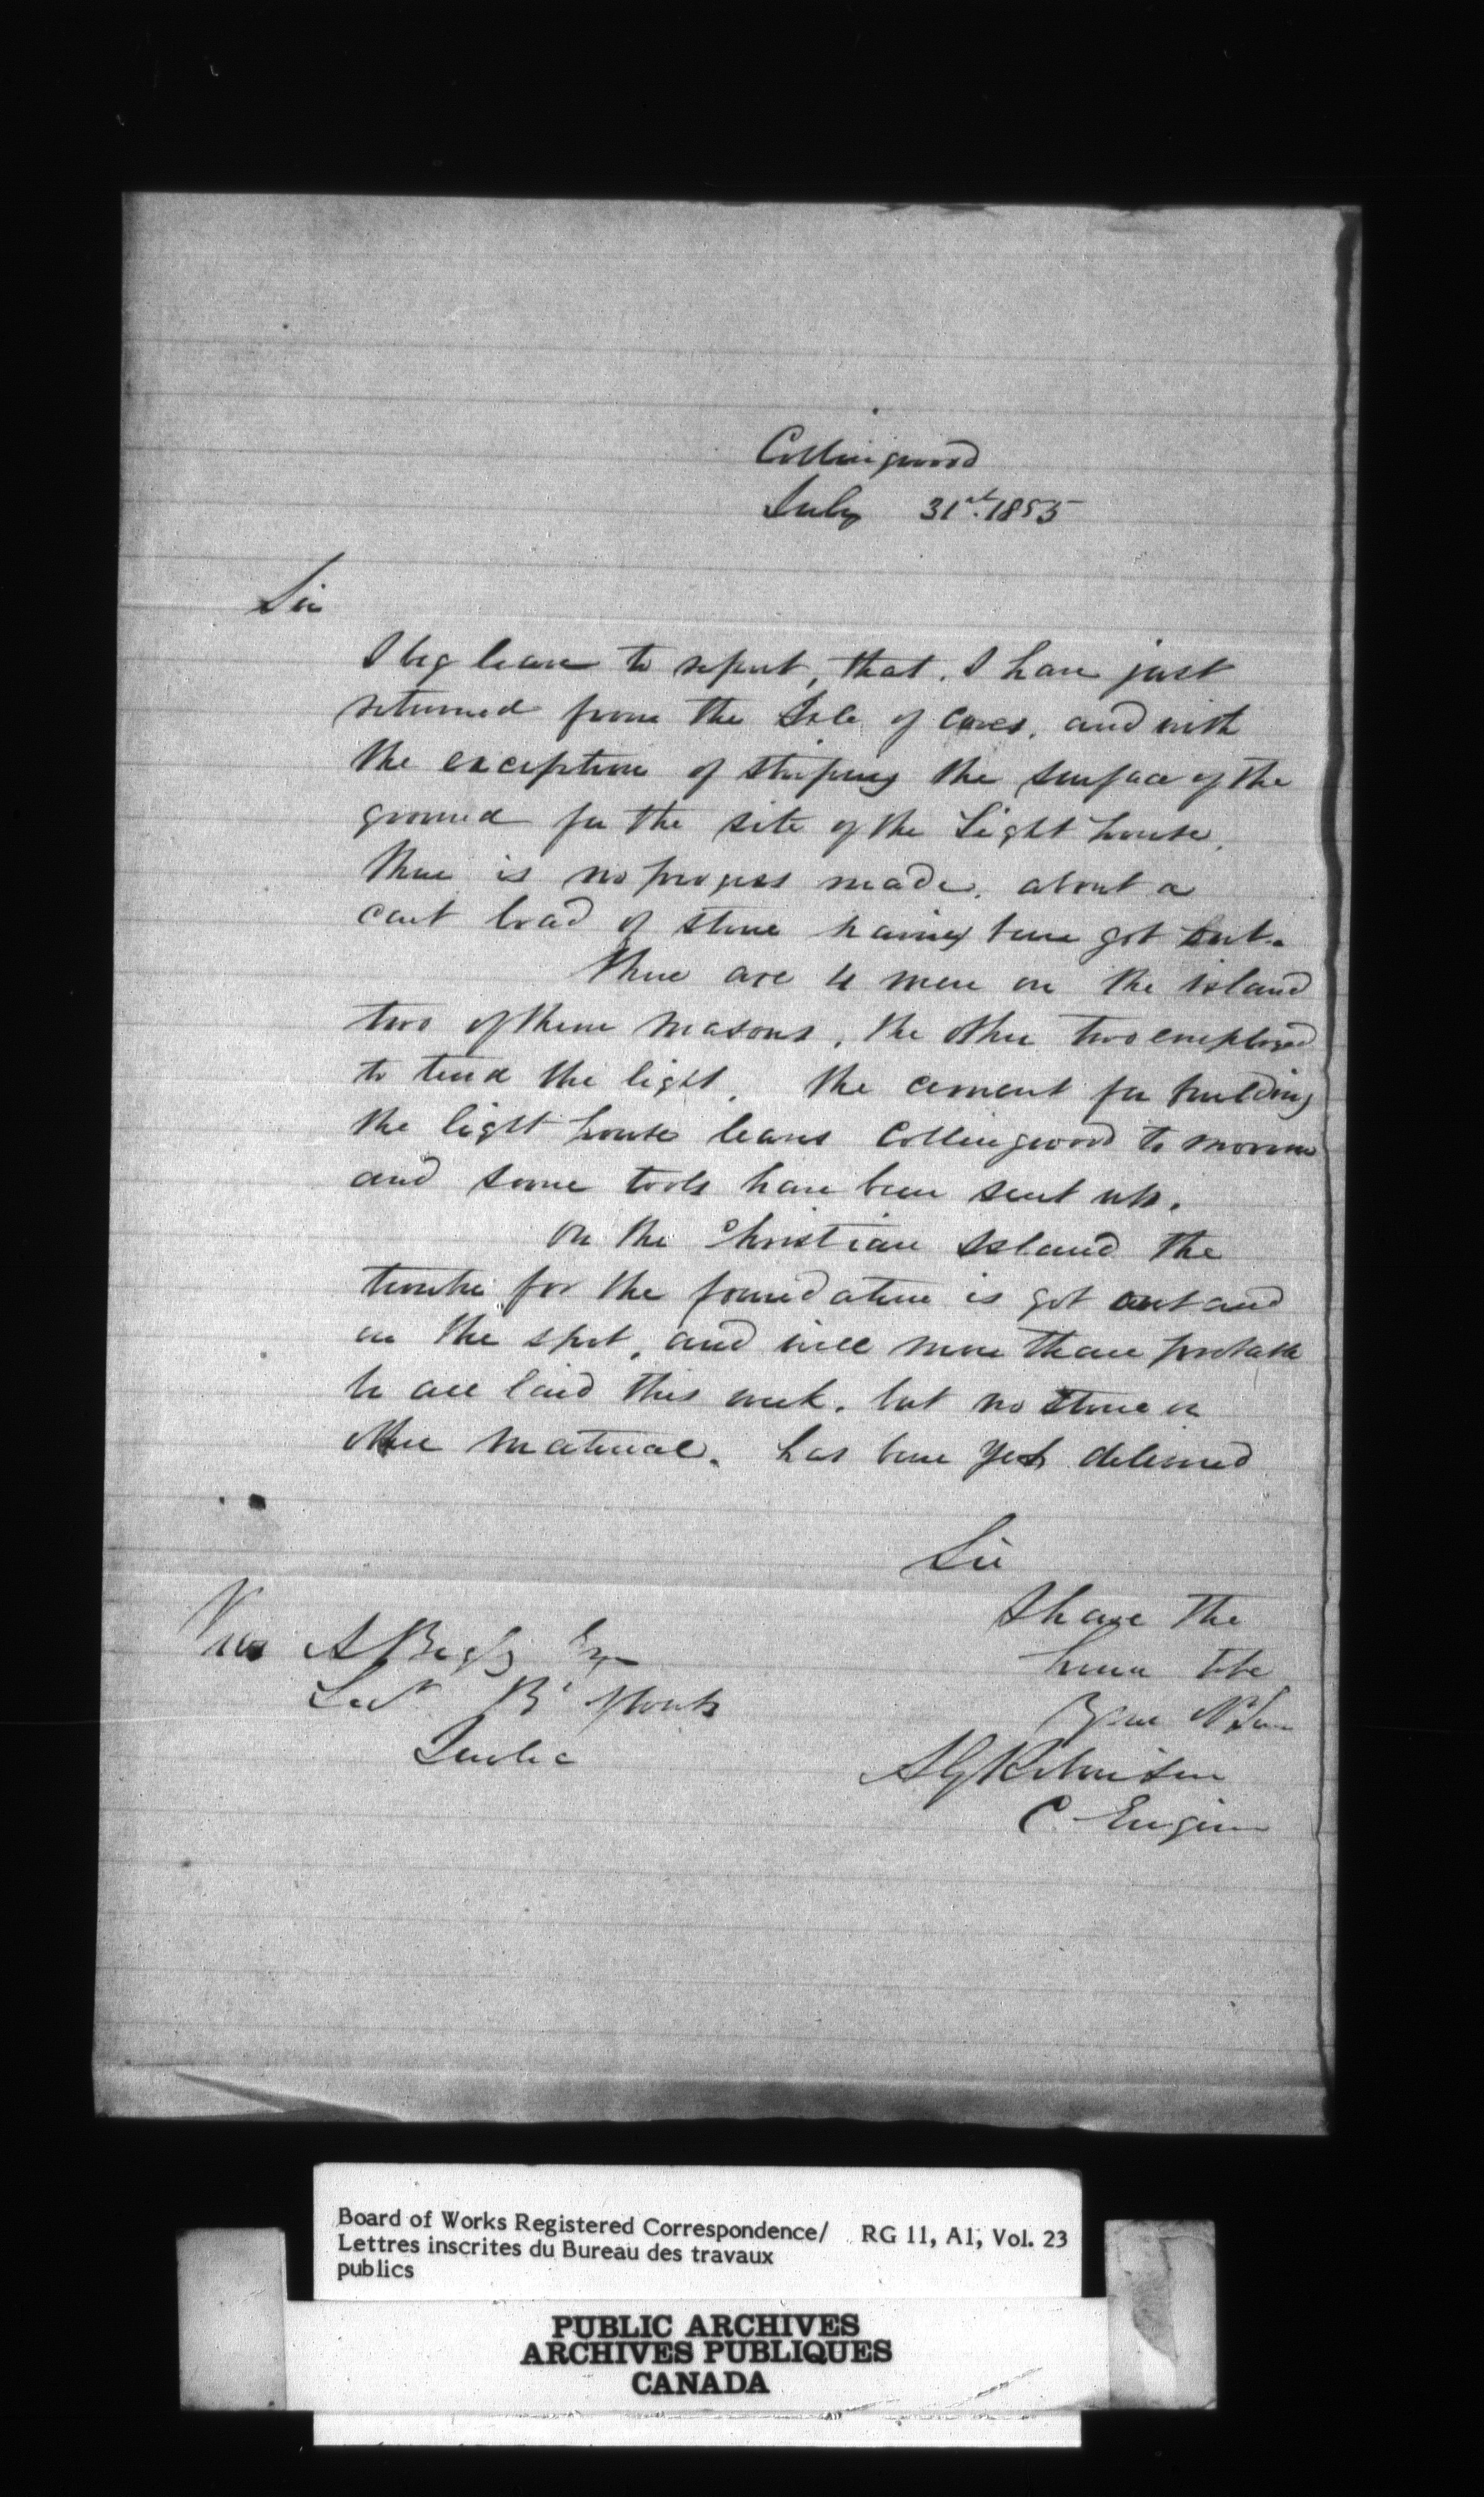 Collingwood
July 31st. 1855
Sir
I beg leave to report, that. I have just
returned from the Isle of Caves. and with
the exception of striping the surface of the
ground for the site of the Light house.
there is no progress made. about a
cart load of stone having been got out.
There are 4 men on the island
two of them masons, the other two employed
to tend the light. The cement for building
the light house leaves Collingwood to morrow
and some tools have been sent up.
On the Christian Island the
timber for the foundation is got out and
on the spot, and will more than probable
be all laid this week. but no stone or
other material. has been yet delivered
Sir
I have the
honor to be
A G Robinson
C. Engineer
A Begly Esq
Sect B Works
Quebec
Board of Works Registered Correspondence/ RG 11, A1, Vol. 23
Lettres inscrites du Bureau des travaux
publics
PUBLIC ARCHIVES
ARCHIVES PUBLIQUES
CANADA